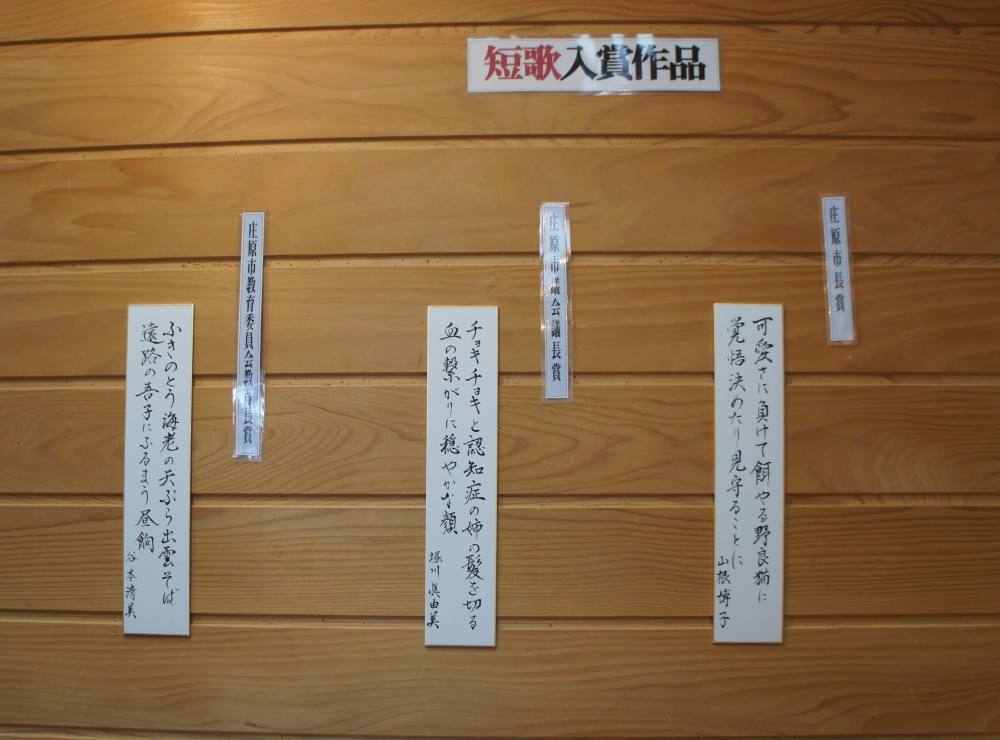 短歌入賞作品
庄原市長賞
可愛さに負けて餌やる野良猫に
覚悟決めたり見守ることに
山根博子
庄原市議会議長賞
チョキチョキと認知症の姉の髪を切る
血の繋がりに穏やかな顔
堀川眞由美
庄原市教育委員会教育長賞
ふきのとう海老の天ぷら出雲そば
遠路の吾子にふるまう昼餉
谷本清美